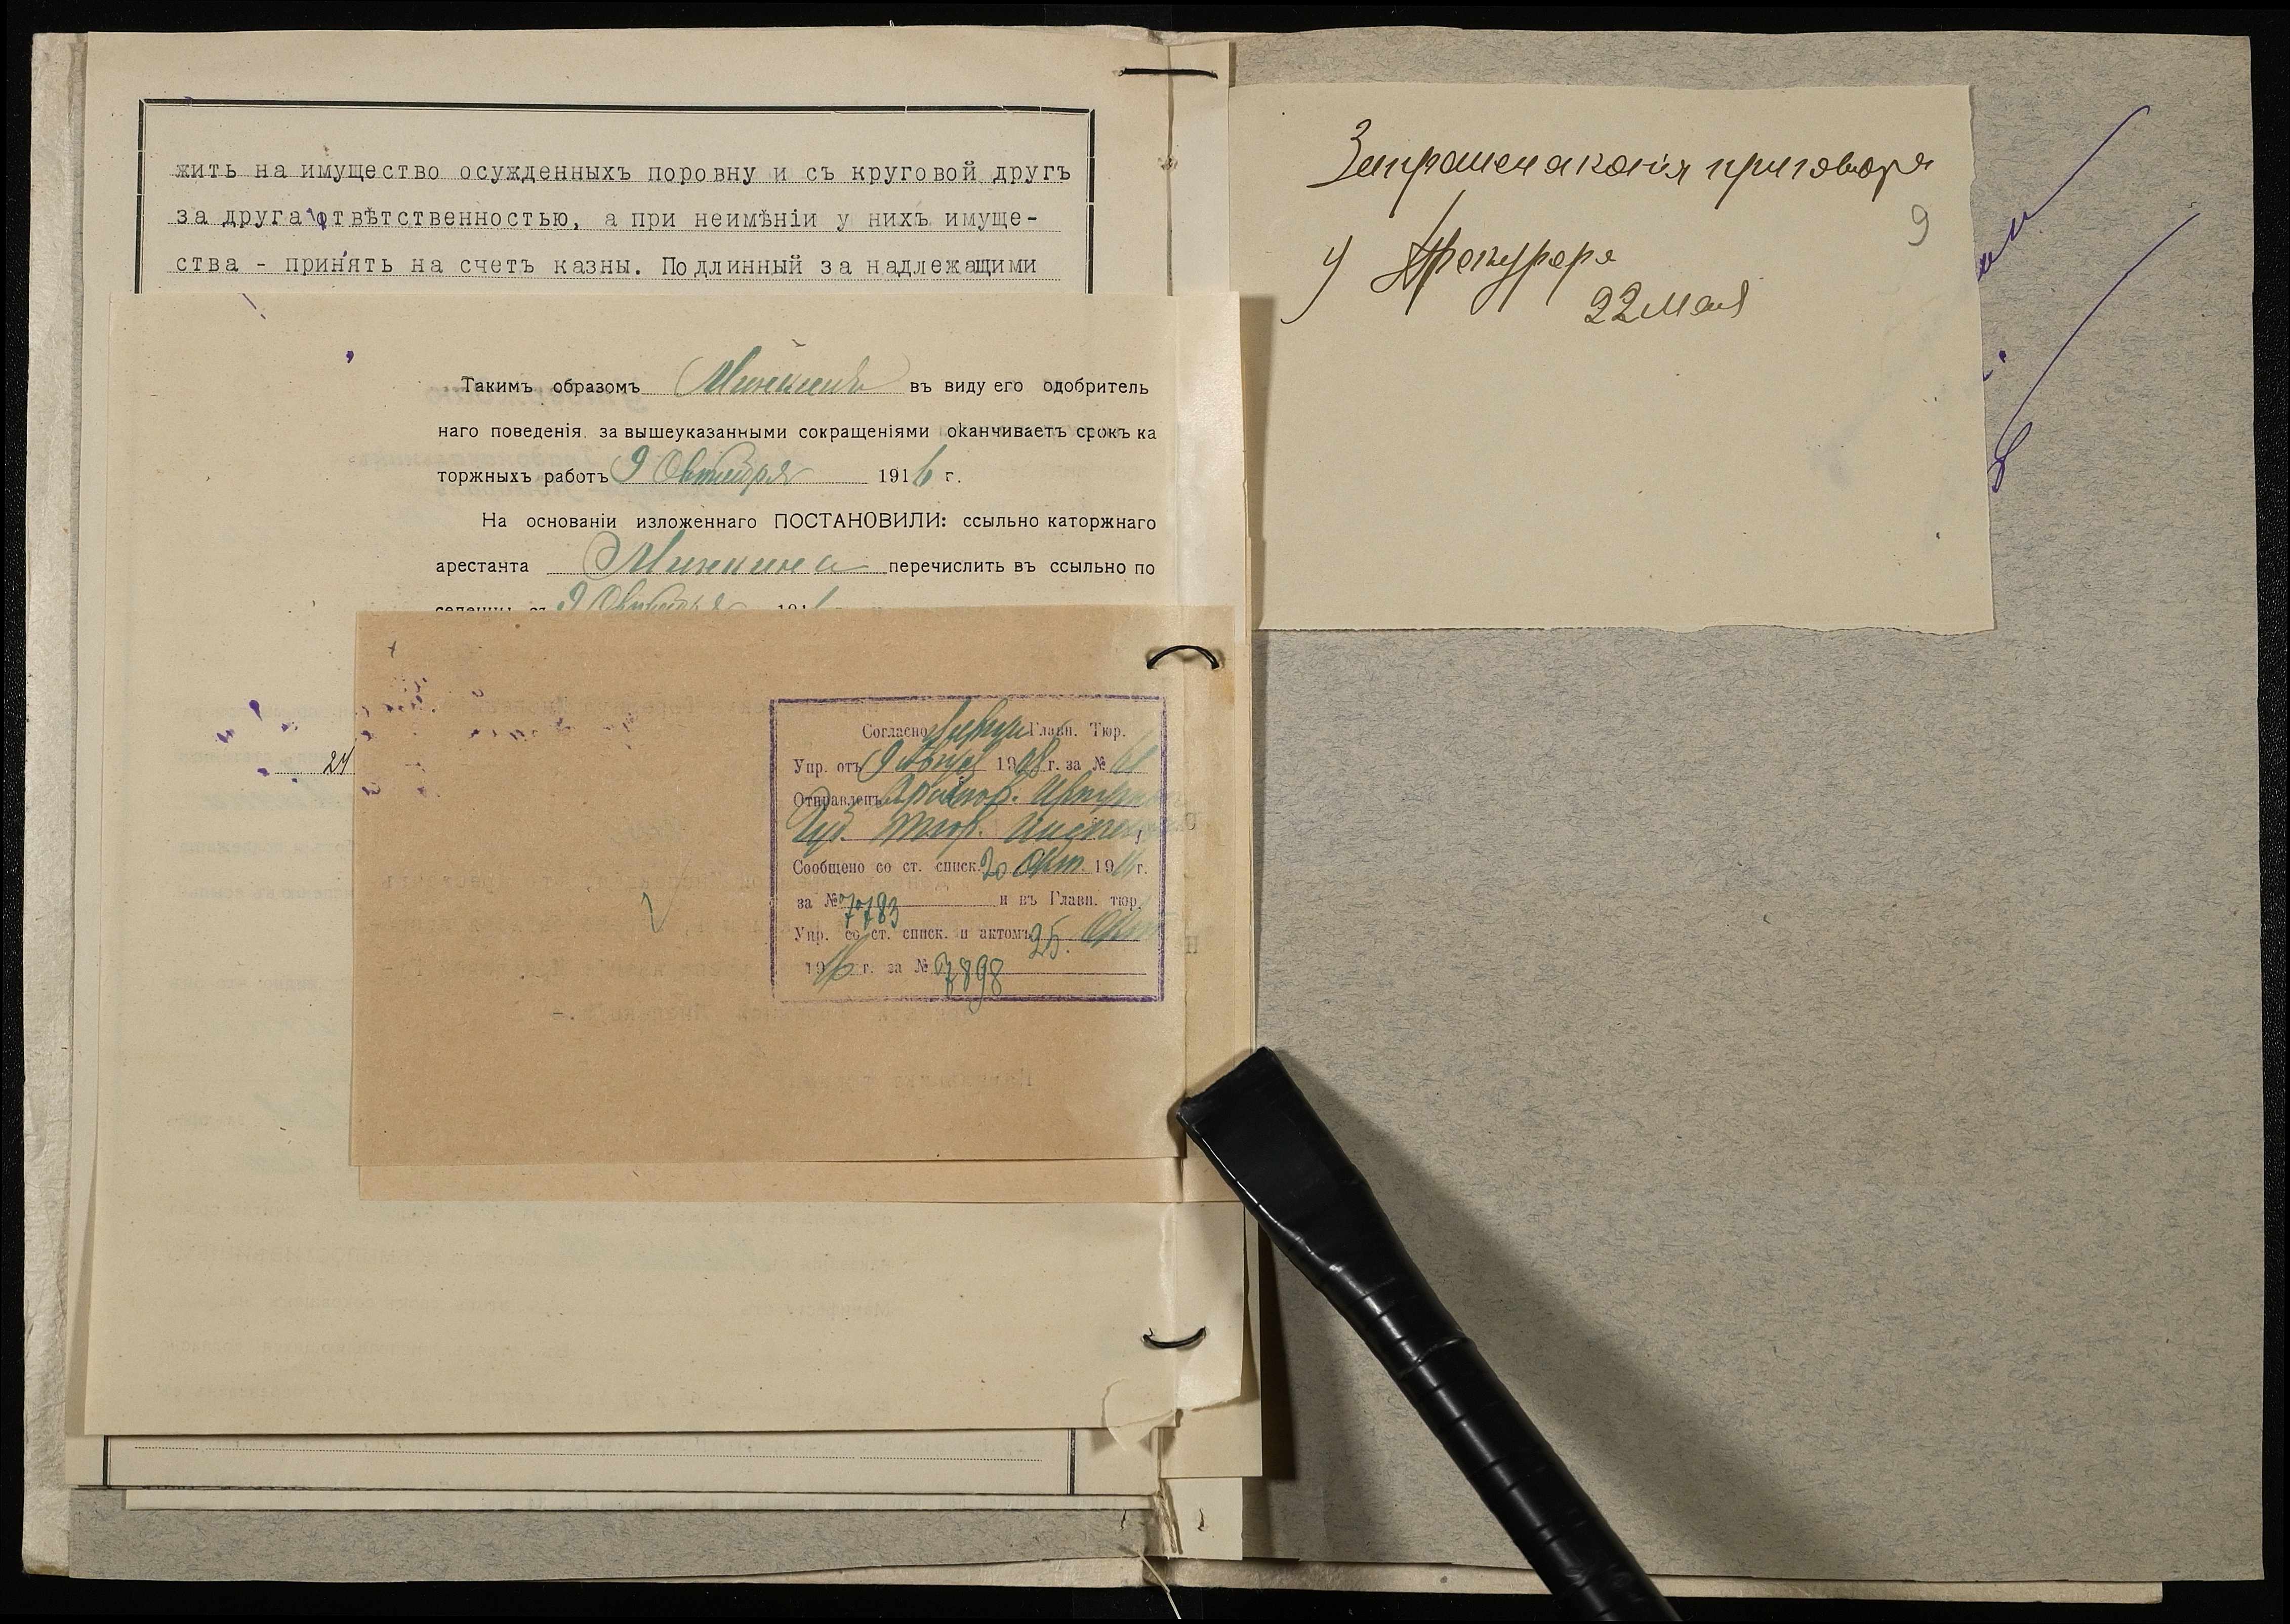 жить на имущество осужденныхъ поровну и съ круговой другъ
за друга отвѣтственностью, а при неимѣніи у нихъ имуще-
ства - принять на счетъ казны. Подлинный за надлежащими
Такимъ образомъ Минкинъ въ виду его одобритель
наго поведенія за вышеуказанными сокращеніями оканчиваетъ срокъ ка
торжныхъ работъ 9 Октября 1916 г.
На основаніи изложеннаго ПОСТАНОВИЛИ: ссыльно каторжнаго
арестанта Минкина перечислить въ ссыльно по
9 Октября
24
Согласно Главн. Тюр.
Упр. отъ 9 1908 г. за №
Отправленъ
Губ. тюр.
Сообщено со ст. списк. 20 Окт. 1916 г.
за № 7783 и въ Главн. тюр.
Упр. со ст. списк. и актомъ 25. Окт
1916 г. за № 7898
Запрошена копія приговора
у Прокурора
22 Мая
9